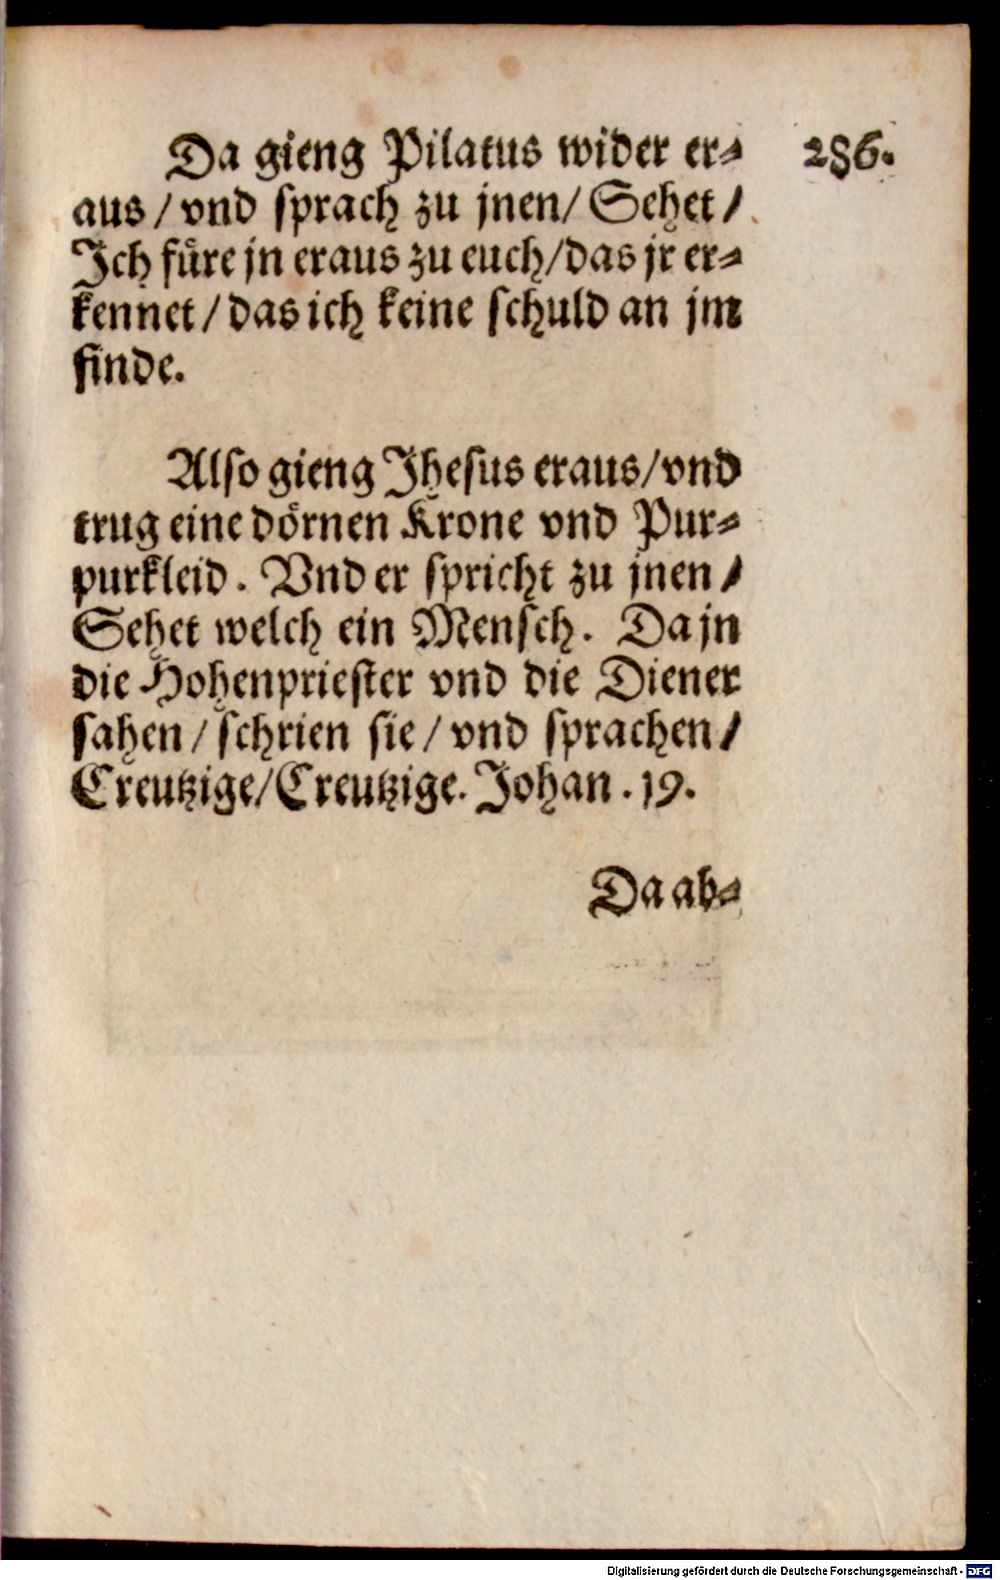 Da gieng Pilatus wider er⸗ 286.
aus / vnd sprach zu jnen / Sehet /
Ich fuͤre jn eraus zu euch / das jr er⸗
kennet / das ich keine schuld an jm
finde.
Also gieng Jhesus eraus / vnd
trug eine doͤrnen Krone vnd Pur⸗
purkleid. Vnd er spricht zu jnen /
Sehet welch ein Mensch. Da jn
die Hohenpriester vnd die Diener
sahen / schrien sie / vnd sprachen /
Creutzige / Creutzige. Johan. 19.
Da ab⸗
Digitalisierung gefördert durch die Deutsche Forschungsgemeinschaft - DFG